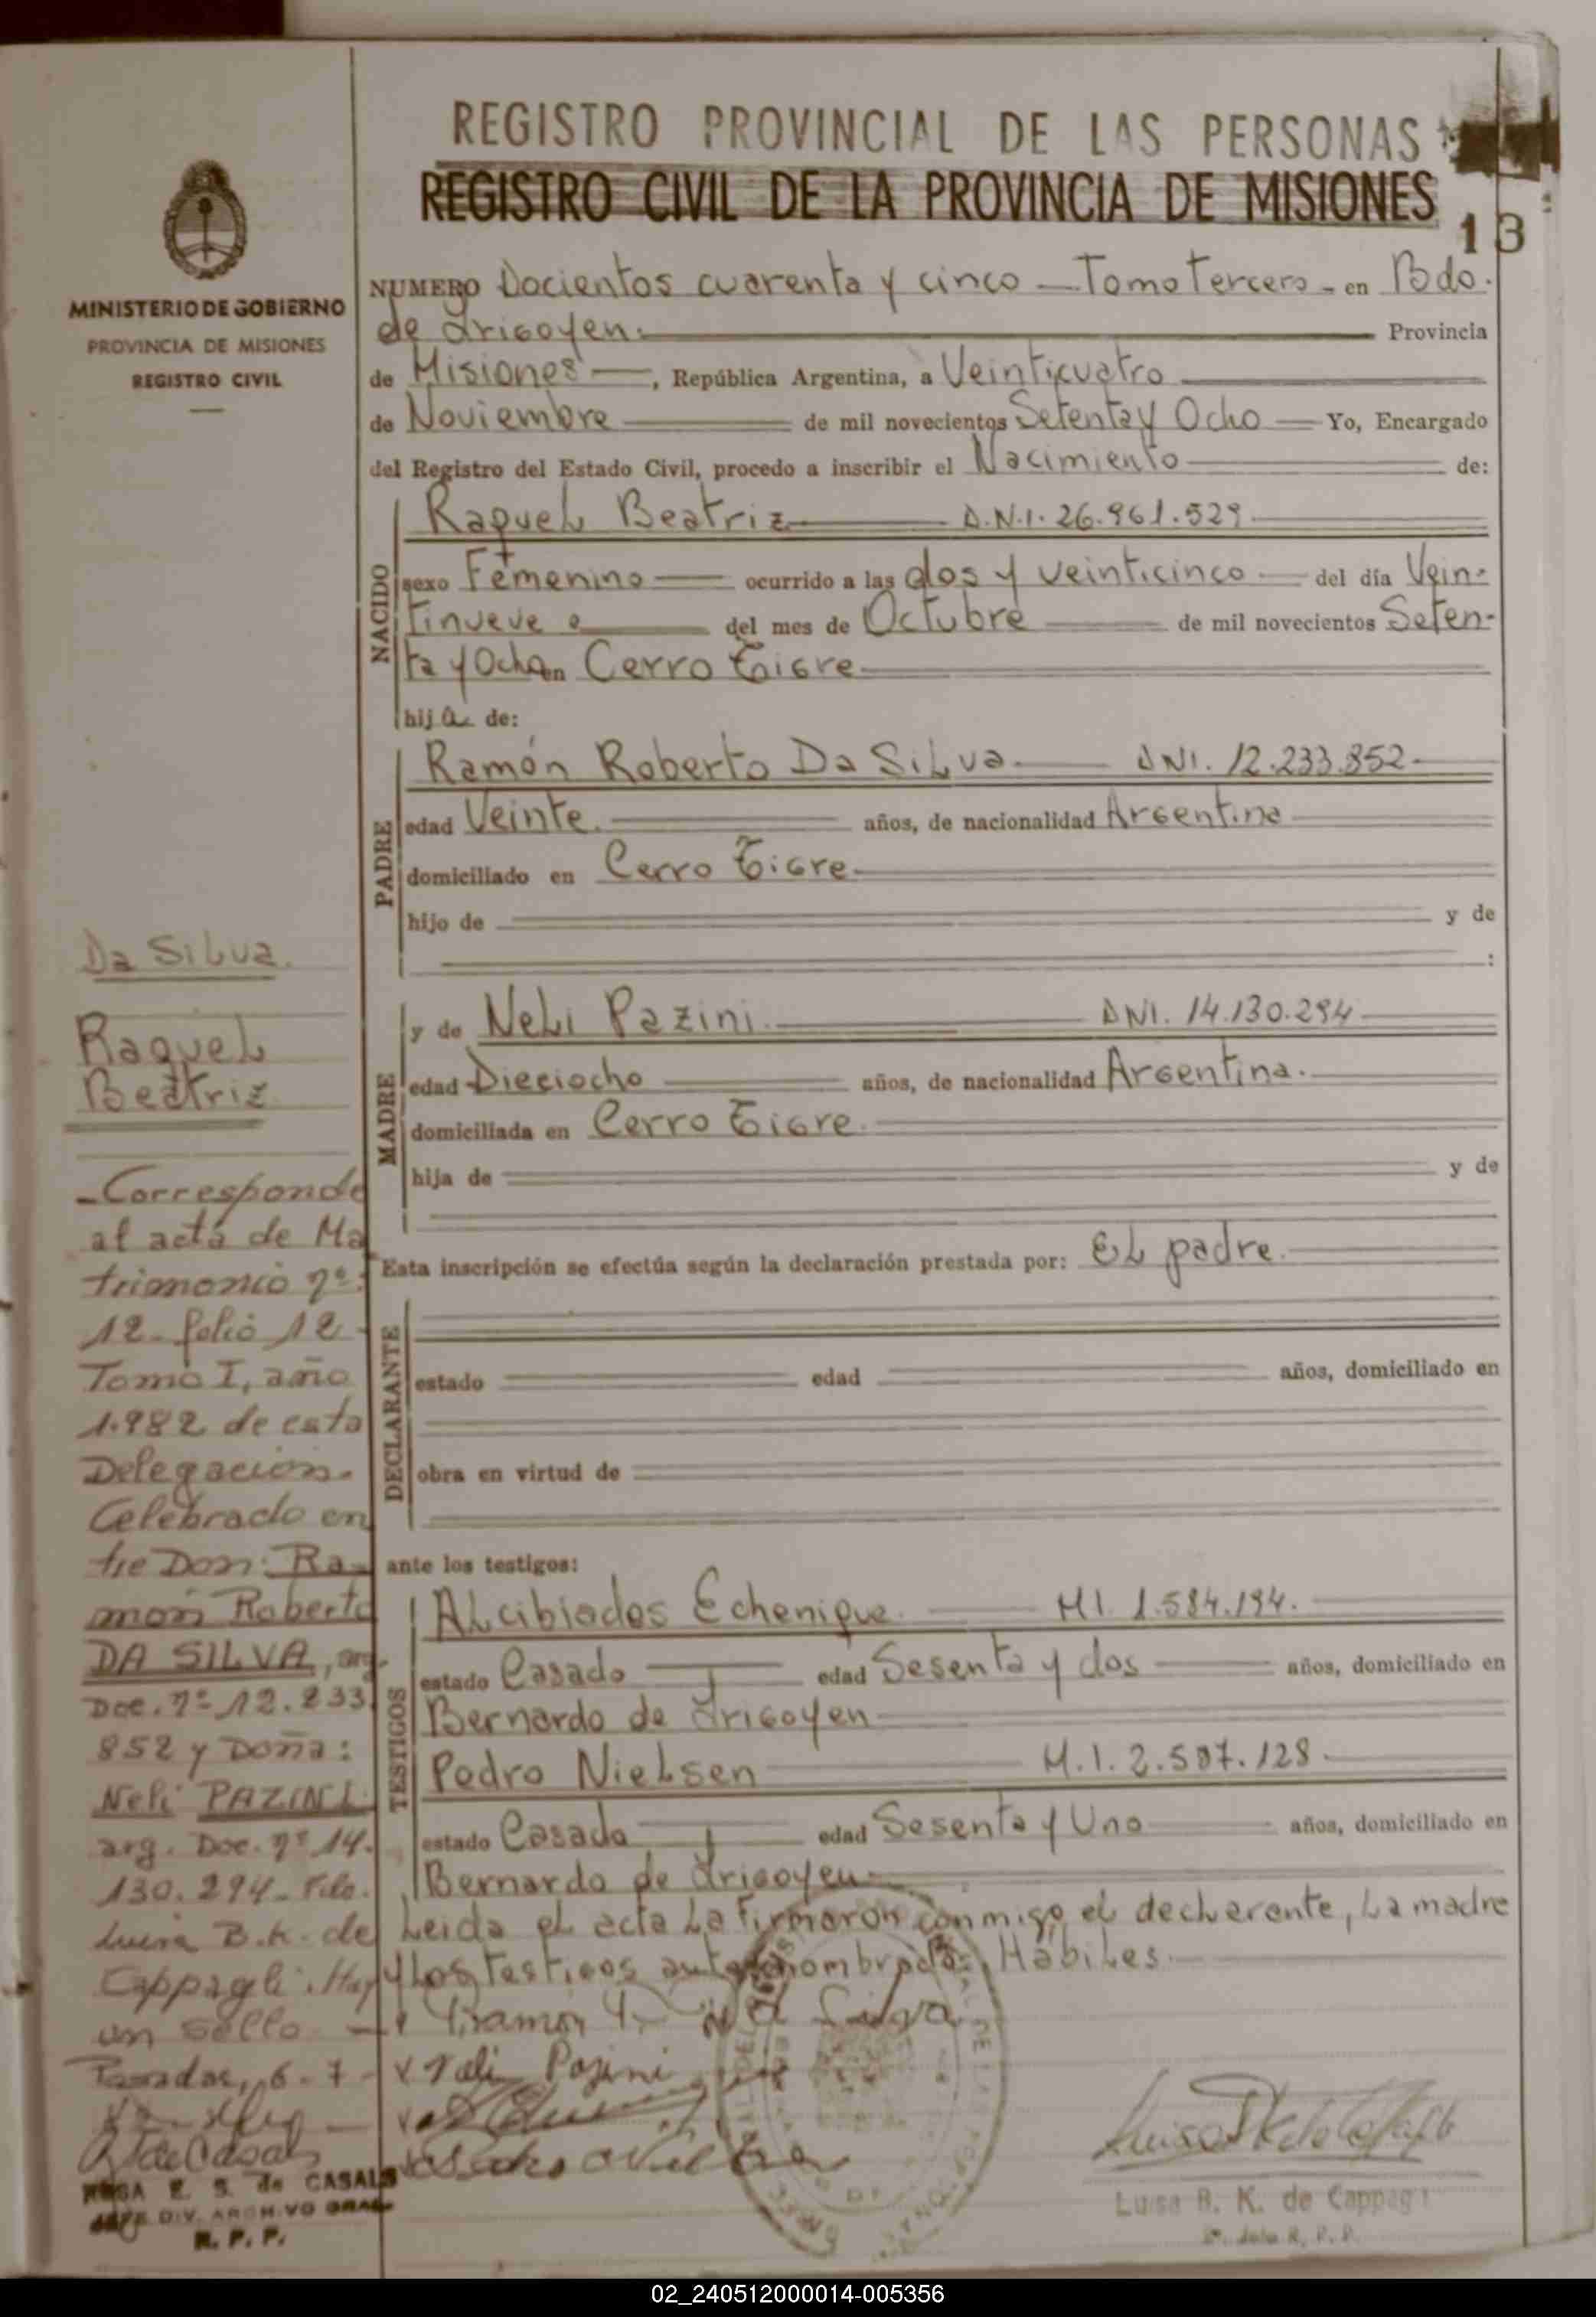 REGISTRO PROVINCIAL DE LAS PERSONAS
REGISTRO CIVIL DE LA PROVINCIA DE MISIONES
13
MINISTERIO DE GOBIERNO
PROVINCIA DE MISIONES
REGISTRO CIVIL
NUMERO Docientos cuarenta y cinco — Tomo Tercero - en Bdo.
de Irigoyen. Provincia
de Misiones —, República Argentina, a Veinticuatro
de Noviembre de mil novecientos Setenta y Ocho — Yo, Encargado
del Registro del Estado Civil, procedo a inscribir el Nacimiento de:
NACIDO
Raquel Beatriz D.N.I. 26.961.529
sexo Femenino ocurrido a las dos y veinticinco del día Vein-
tinueve del mes de Octubre de mil novecientos Seten-
ta y Ocho en Cerro Tigre
hija de:
PADRE
Ramón Roberto Da Silva DNI. 12.233.852
edad Veinte. años, de nacionalidad Argentina
domiciliado en Cerro Tigre
hijo de y de
:
MADRE
y de Neli Pazini DNI. 14.130.294
edad Dieciocho años, de nacionalidad Argentina.
domiciliada en Cerro Tigre
hija de y de
Esta inscripción se efectúa según la declaración prestada por: El padre.
DECLARANTE
estado edad años, domiciliado en
obra en virtud de
ante los testigos:
TESTIGOS
Alcibiades Echenique. MI. 1.584.194.
estado Casado edad Sesenta y dos años, domiciliado en
Bernardo de Irigoyen
Pedro Nielsen M.I. 2.587.128
estado Casado edad Sesenta y Uno años, domiciliado en
Bernardo de Irigoyen
Leida el acta la firmaron conmigo el declarente, la madre
y los testigos antes nombrados, Hábiles.
Ramón R. Da Silva
Neli Pazini
Luisa B. K. de Cappagli
R. P. P.
Da Silva.
Raquel
Beatriz
- Corresponde
al acta de Ma
trimonio nº
12 - folio 12
Tomo I, año
1.982 de esta
Delegación.
Celebrado en
tre Don: Ra-
món Roberto
DA SILVA, arg.
Doc. nº 12.233
852 y Doña:
Neli PAZINI
arg. Doc. nº 14.
130.294 - Fdo.
Luisa B.K. de
Cappagli. Hay
un sello
Posadas, 6-7-
ROSA E. S. de CASALS
JEFE DIV. ARCHIVO GRAL
R. P. P.
02_240512000014-005356